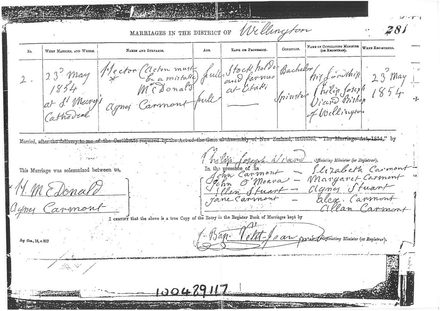 MARRIAGES IN THE DISTRICT OF Wellington 281
No. WHEN MARRIED, AND WHERE. NAMES AND SURNAMES. AGE RANK OR PROFESSION. CONDITION. NAME OF OFFICIATING MINISTER (OR REGISTRAR). WHEN REGISTERED.
2. 23d May 1854 at St Mary's Cathedral
Hector (Acton must be a mistake) McDonald full Stockholder and farmer at Otaki Bachelor
Agnes Carmont full Spinster
His Lordship Philip Joseph Viard Bishop of Wellington
23d May 1854
Married, after the delivery to me of the Certificate required by the Act of the General Assembly of New Zealand, intituled, "The Marriage Act, 1854," by
Philip Joseph Viard (Officiating Minister (or Registrar).
This Marriage was solemnized between us,
H McDonald
Agnes Carmont
In the presence of us
John Carmont - Elizabeth Carmont
John O'Meara - Margaret Carmont
Ellen Stuart - Agnes Stuart
Jane Carmont - Alex. Carmont
Allan Carmont
I CERTIFY that the above is a true Copy of the Entry in the Register Book of Marriages kept by
Officiating Minister (or Registrar).
100429117